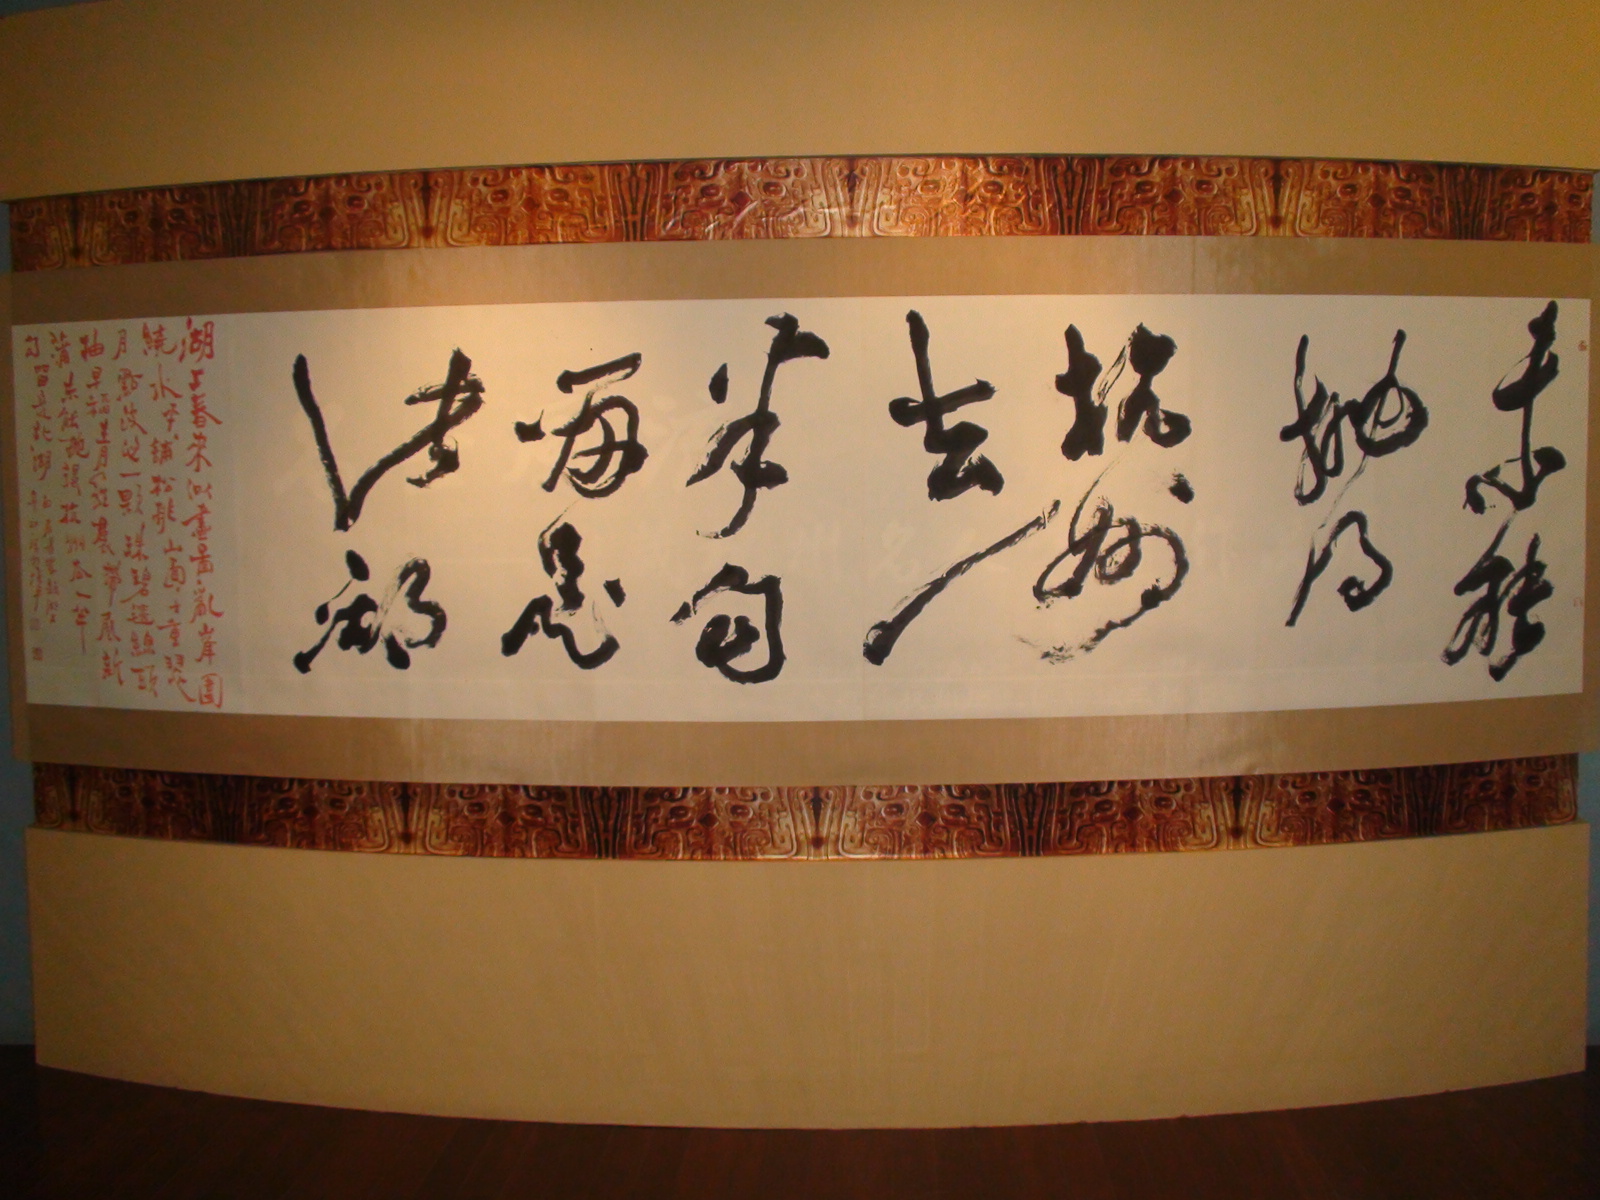 未能
抛得
杭州
去一
半勾
留是
此湖
湖上春来似畫圖亂峰圍
繞水平鋪松排山面千重翠
月點波心一顆珠碧毯線頭
抽早稻青羅裙帶展新
蒲未能抛得杭州去一半
勾留是此湖